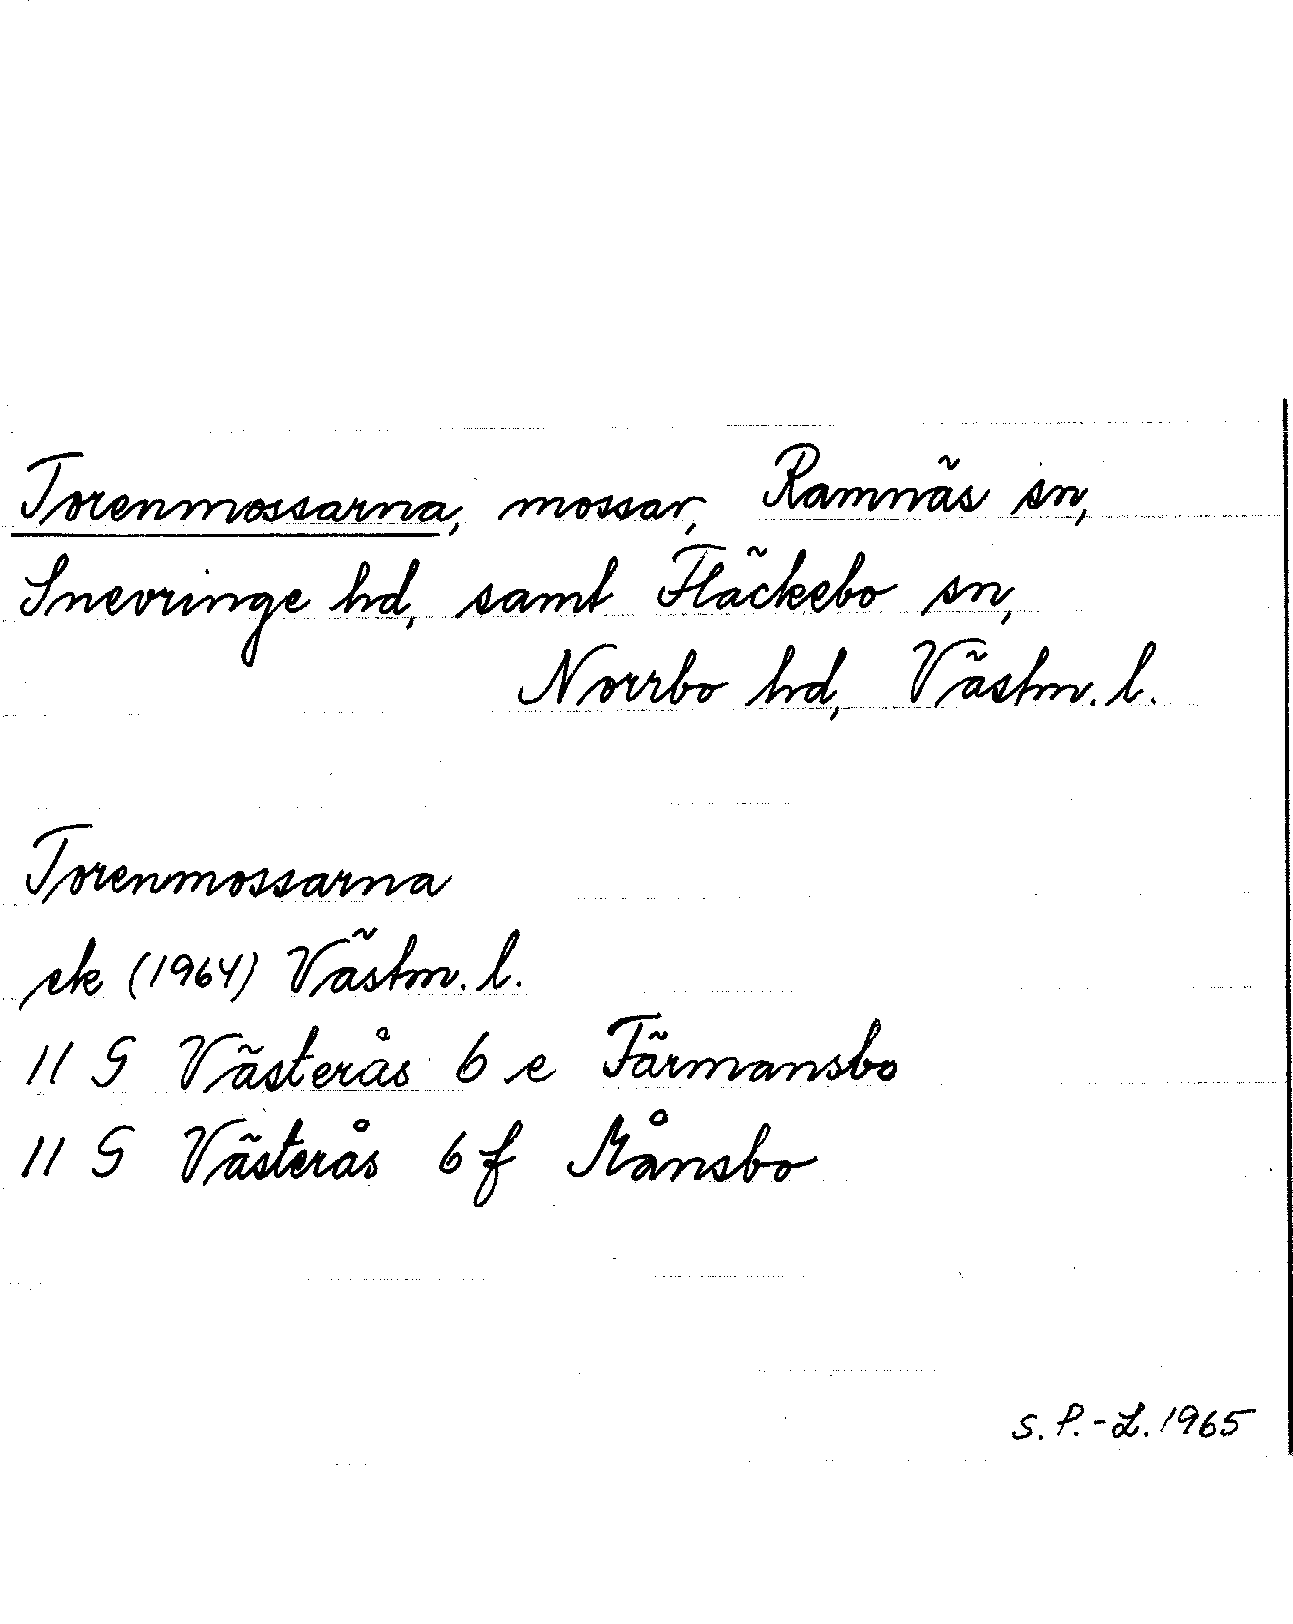 Torenmossarna, mossar, Ramnäs sn,
Snevringe hd, samt Fläckebo sn,
Norrbo hd, Västm. l.
Torenmossarna
ek (1964) Västm. l.
11 G Västerås 6 e Färmansbo
11 G Västerås 6 f Månsbo
S. P.-L. 1965